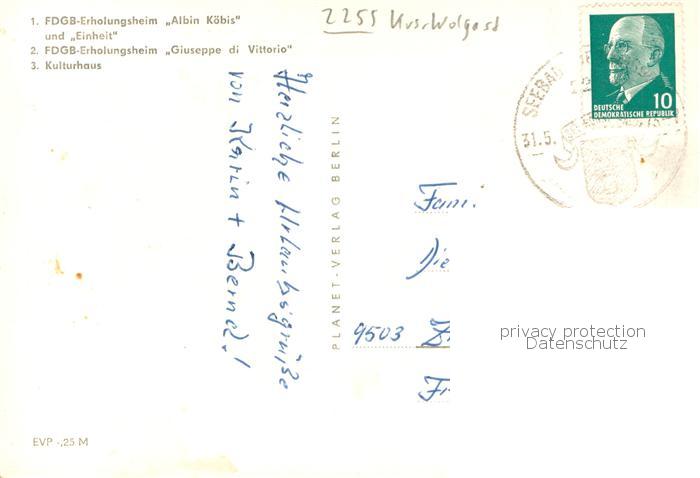 1. FDGB-Erholungsheim „Albin Köbis"
und „Einheit"
2. FDGB-Erholungsheim „Giuseppe di Vittorio"
3. Kulturhaus
2255 Krs. Wolgast
SEEBAD
31.5.
10
DEUTSCHE
DEMOKRATISCHE REPUBLIK
Herzliche Urlaubsgrüße
von Karin + Bernd!
PLANET-VERLAG BERLIN
Fam.
Die
9503
privacy protection
Datenschutz
EVP -,25 M